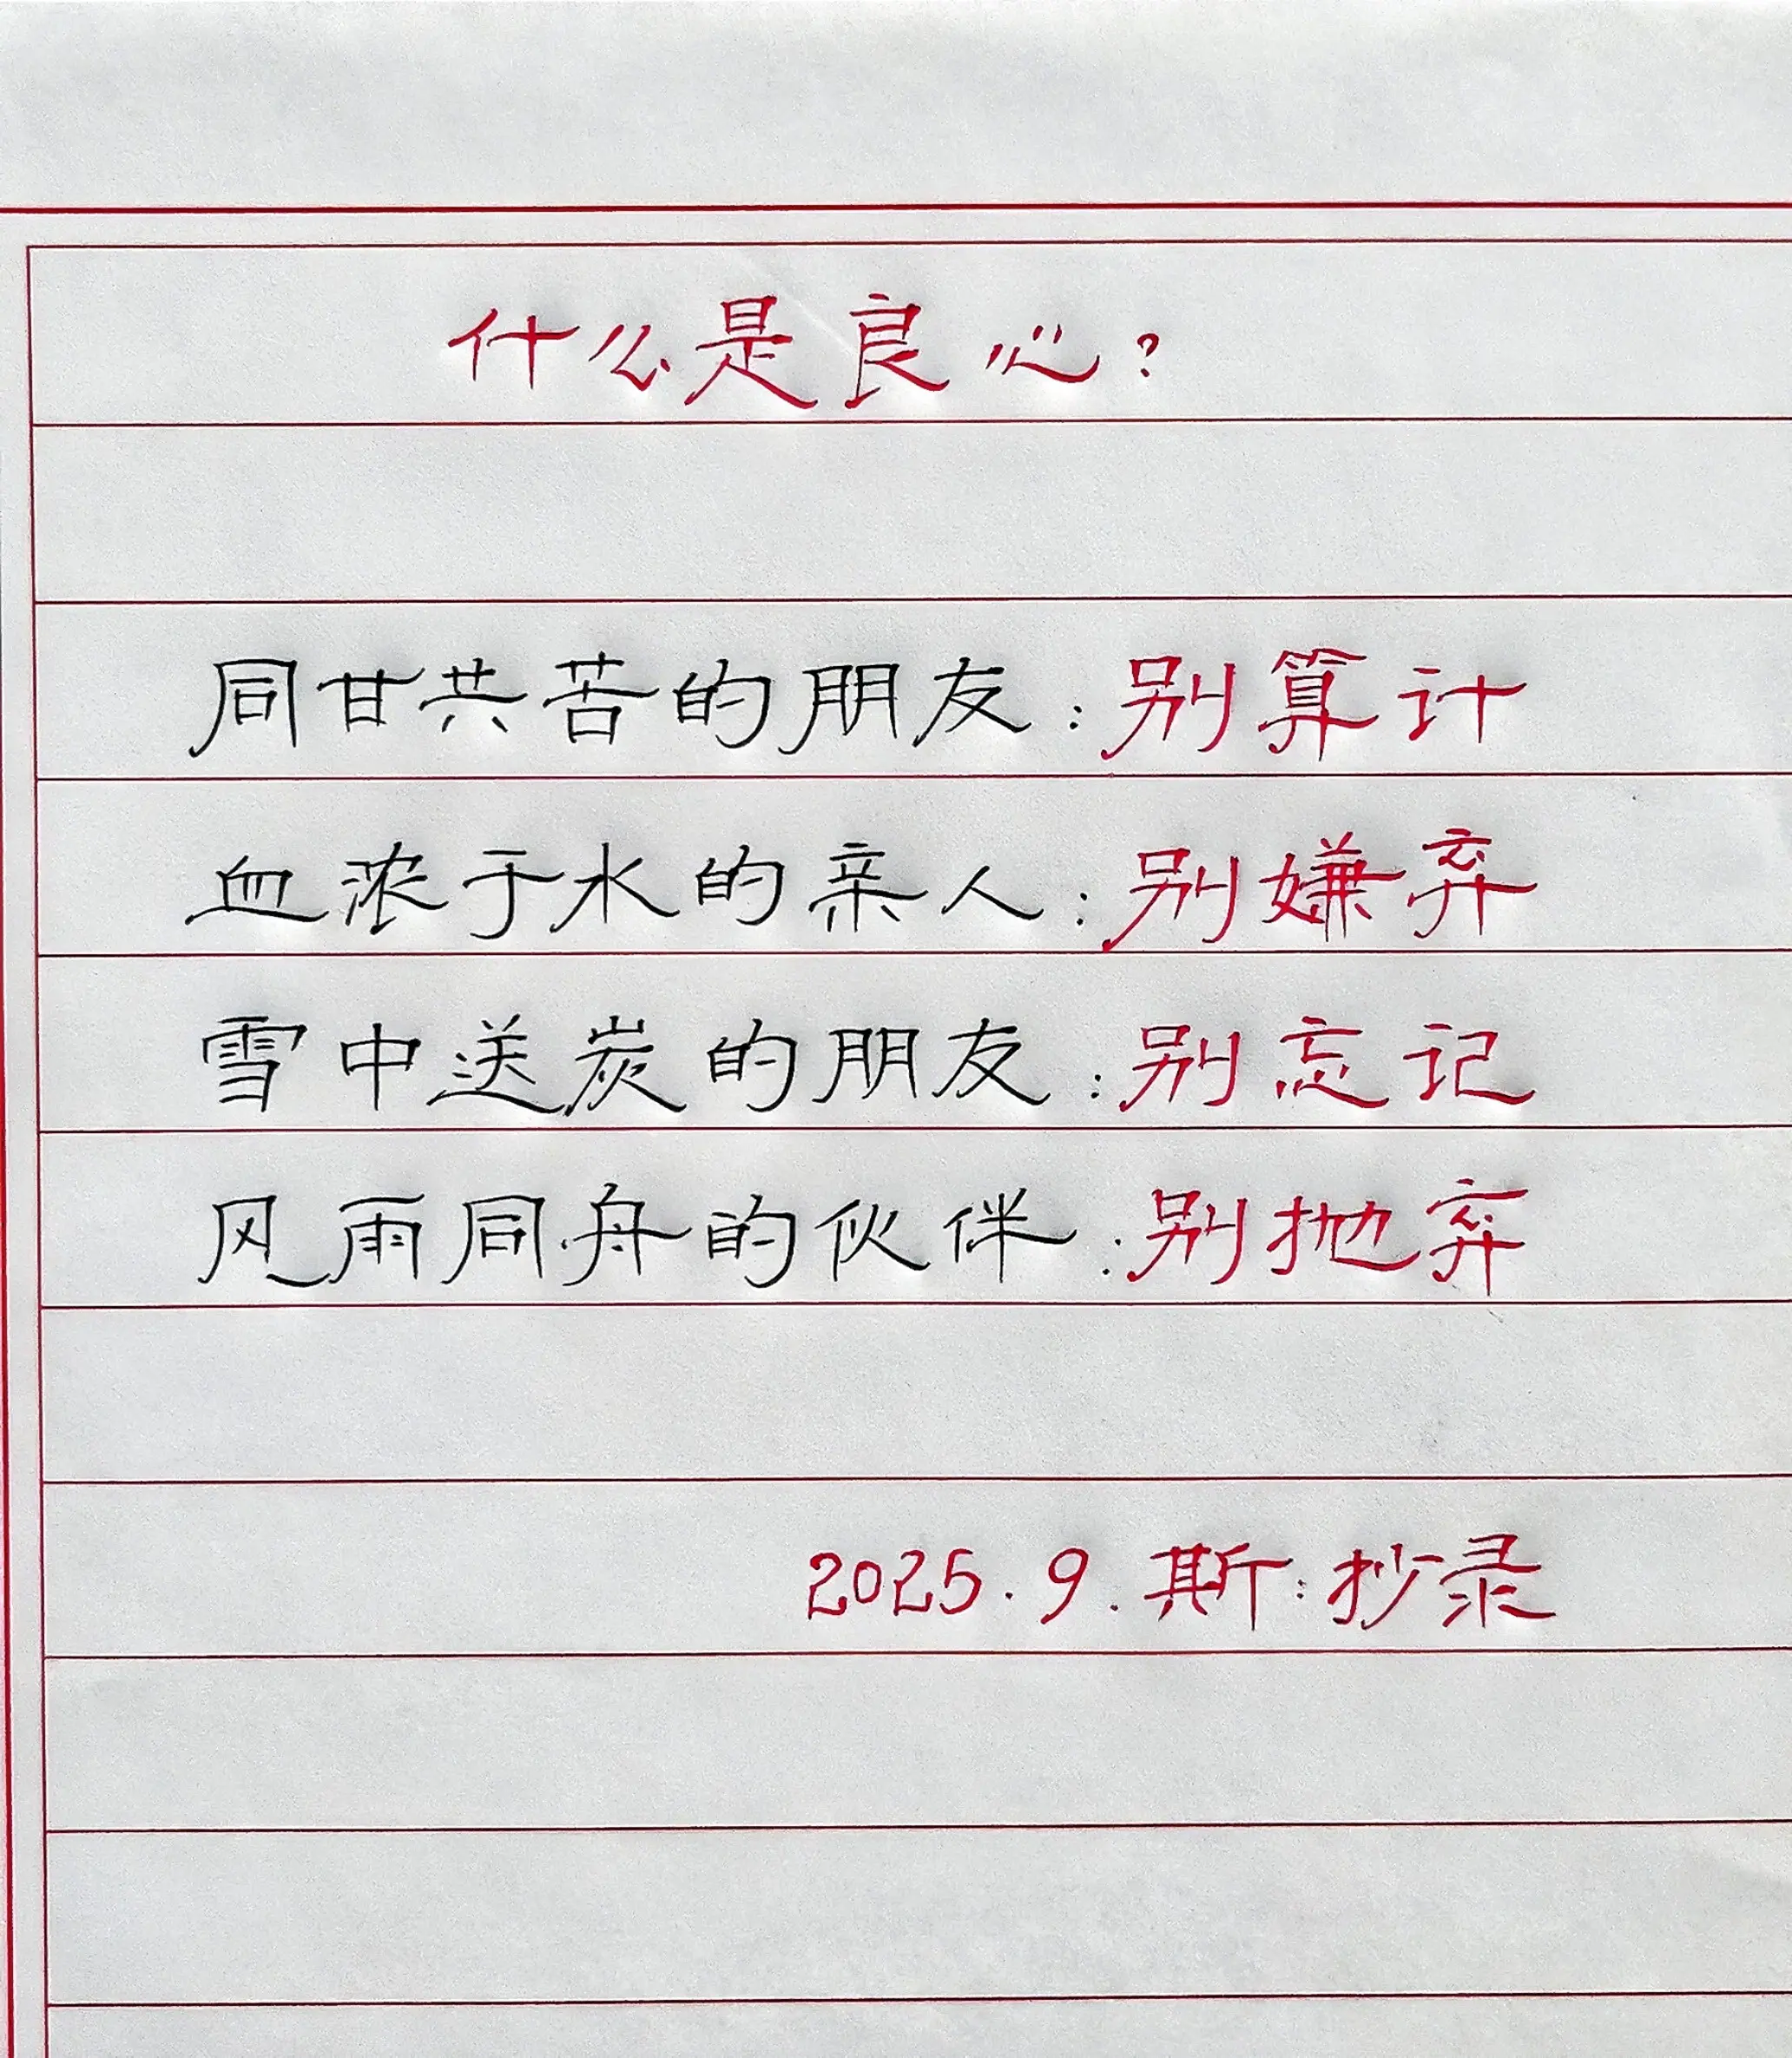 什么是良心?
同甘共苦的朋友:别算计
血浓于水的亲人:别嫌弃
雪中送炭的朋友:别忘记
风雨同舟的伙伴:别抛弃
2025.9.斯:抄录